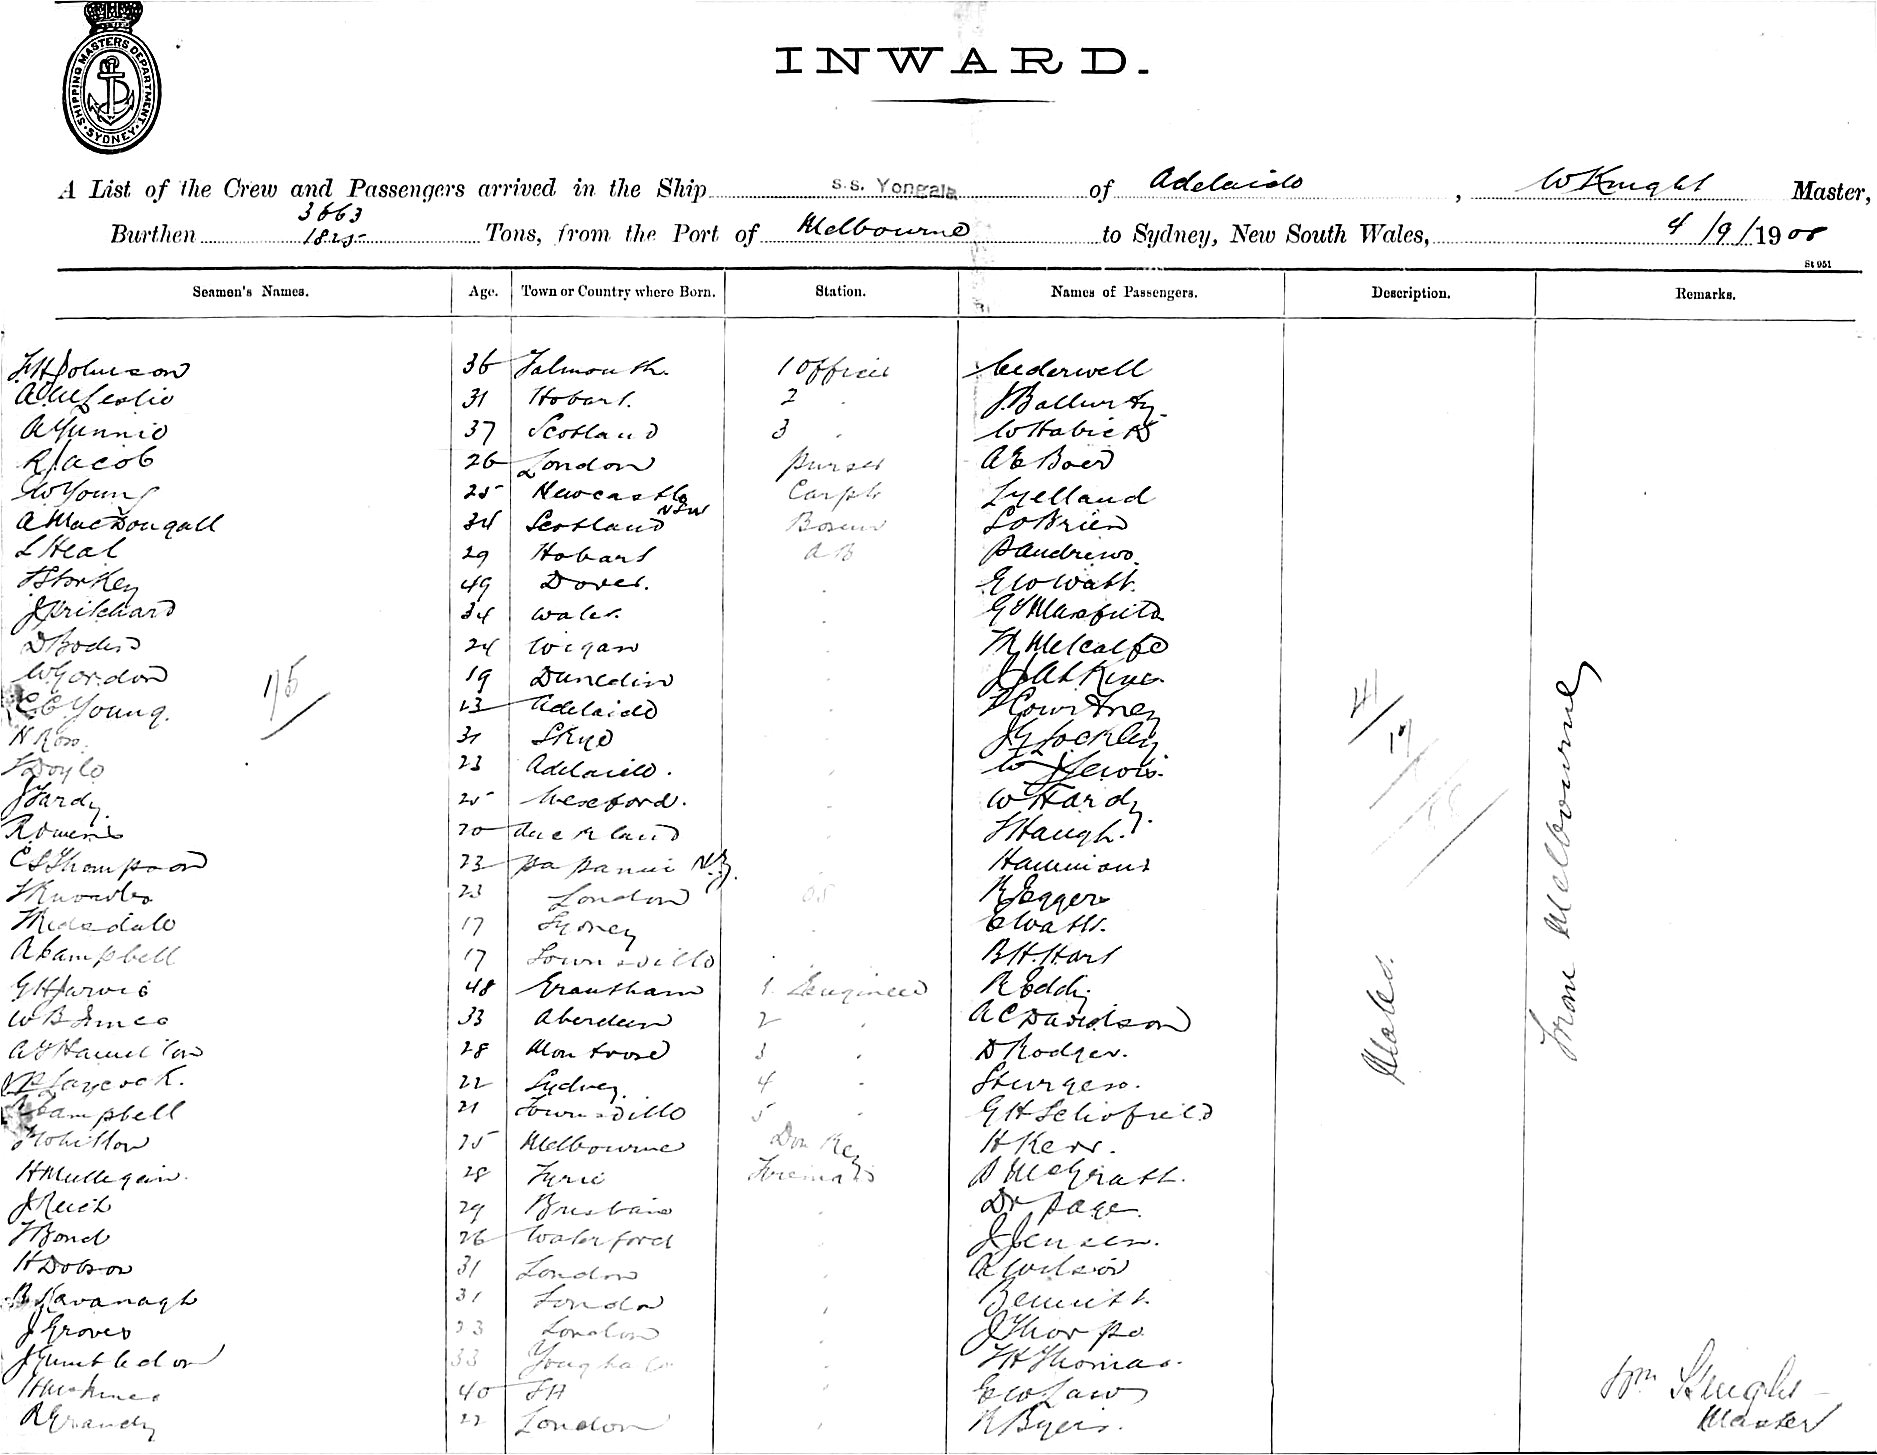 SHIPPING MASTERS DEPARTMENT. SYDNEY
INWARD.
A List of the Crew and Passengers arrived in the Ship s.s. Yongala of Adelaide, W Knight Master,
3663
Burthen 1825 Tons, from the Port of Melbourne to Sydney, New South Wales, 4/9/1908
St 951
Seamen's Names. Age. Town or Country where Born. Station. Names of Passengers. Description. Remarks.
F H Johnson 36 Falmouth. 1 Officer Calderwell
A Leslie 31 Hobart. 2 "
37 Scotland 3 " W
R Jacob 26 London purser A E Boer
W Young 25 Newcastle NSW Carptr Lyelland
A MacDougall 34 Scotland Bosun L O Brien
L Heal 29 Hobart A B P Andrews
F Storkey 49 Dover. " E W Watt.
J Prichard 34 Wales. " G Maxfield
D 24 Wigan Metcalfe
W Gordon 19 Dunedin "
C C Young. 23 Adelaide " Courtney
N Ross. 31 Skye J G Lockley
Doyle 23 Adelaide. " W J Lewis.
J Hardy 25 Hereford. " W Hardy
R Owens 20 Auckland " Haugh.
C S Thompson 23 Papanui N.Z. Hammond
Knowles 23 London OS R Jegger
Ridsdale 17 Sydney " E Watts.
A Campbell 17 Townsville " B H Hart
G H Jarvis 48 Grantham 1 Engineer R Eddy
W B Innes 33 Aberdeen 2 " A C Davidson
A Hamilton 28 Montrose 3 " D Rodger.
Laycock. 22 Sydney 4 " Sturgess.
Campbell 21 Townsville 5 " G H Schofield
25 Melbourne Donkey H Kerr.
H Mullegan. 28 Tyrie Fireman McGrath.
J Reid 29 Brisbane " Dr Page
F Bond 26 Waterford " J Jensen.
H Dobson 31 London " A Wilson
Kavanagh 31 London " Bennett.
J Groves 23 London " J Thorpe
J Gumbledon 33 Youghal " Thomas.
40 " E W Law
R Grandy 22 London " R Byers.
95
41
Males.
From Melbourne
Wm Knight
Master